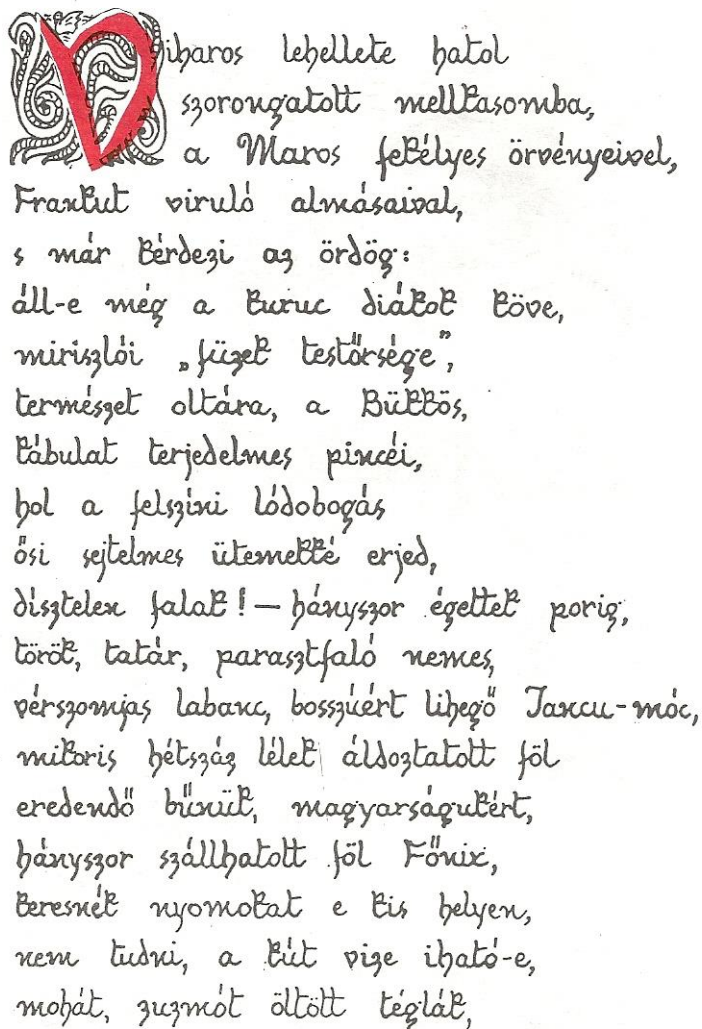 Viharos lehellete hatol
szorongatott mellkasomba,
a Maros fekélyes örvényeivel,
Frankut viruló almásaival,
s már kérdezi az ördög:
áll-e még a kuruc diákok köve,
miriszlói „füzek testőrsége”,
természet oltára, a Bükkös,
kábulat terjedelmes pincéi,
hol a felszíni lódobogás
ősi sejtelmes ütemekké erjed,
dísztelen falak! — hányszor égettek porig,
török, tatár, parasztfaló nemes,
vérszomjas labanc, bosszúért lihegő Jancu-móc,
mikoris hétszáz lélek áldoztatott föl
eredendő bűnük, magyarságukért,
hányszor szállhatott föl Főnix,
keresnék nyomokat e kis helyen,
nem tudni, a kút vize iható-e,
mohát, zuzmót öltött téglák,